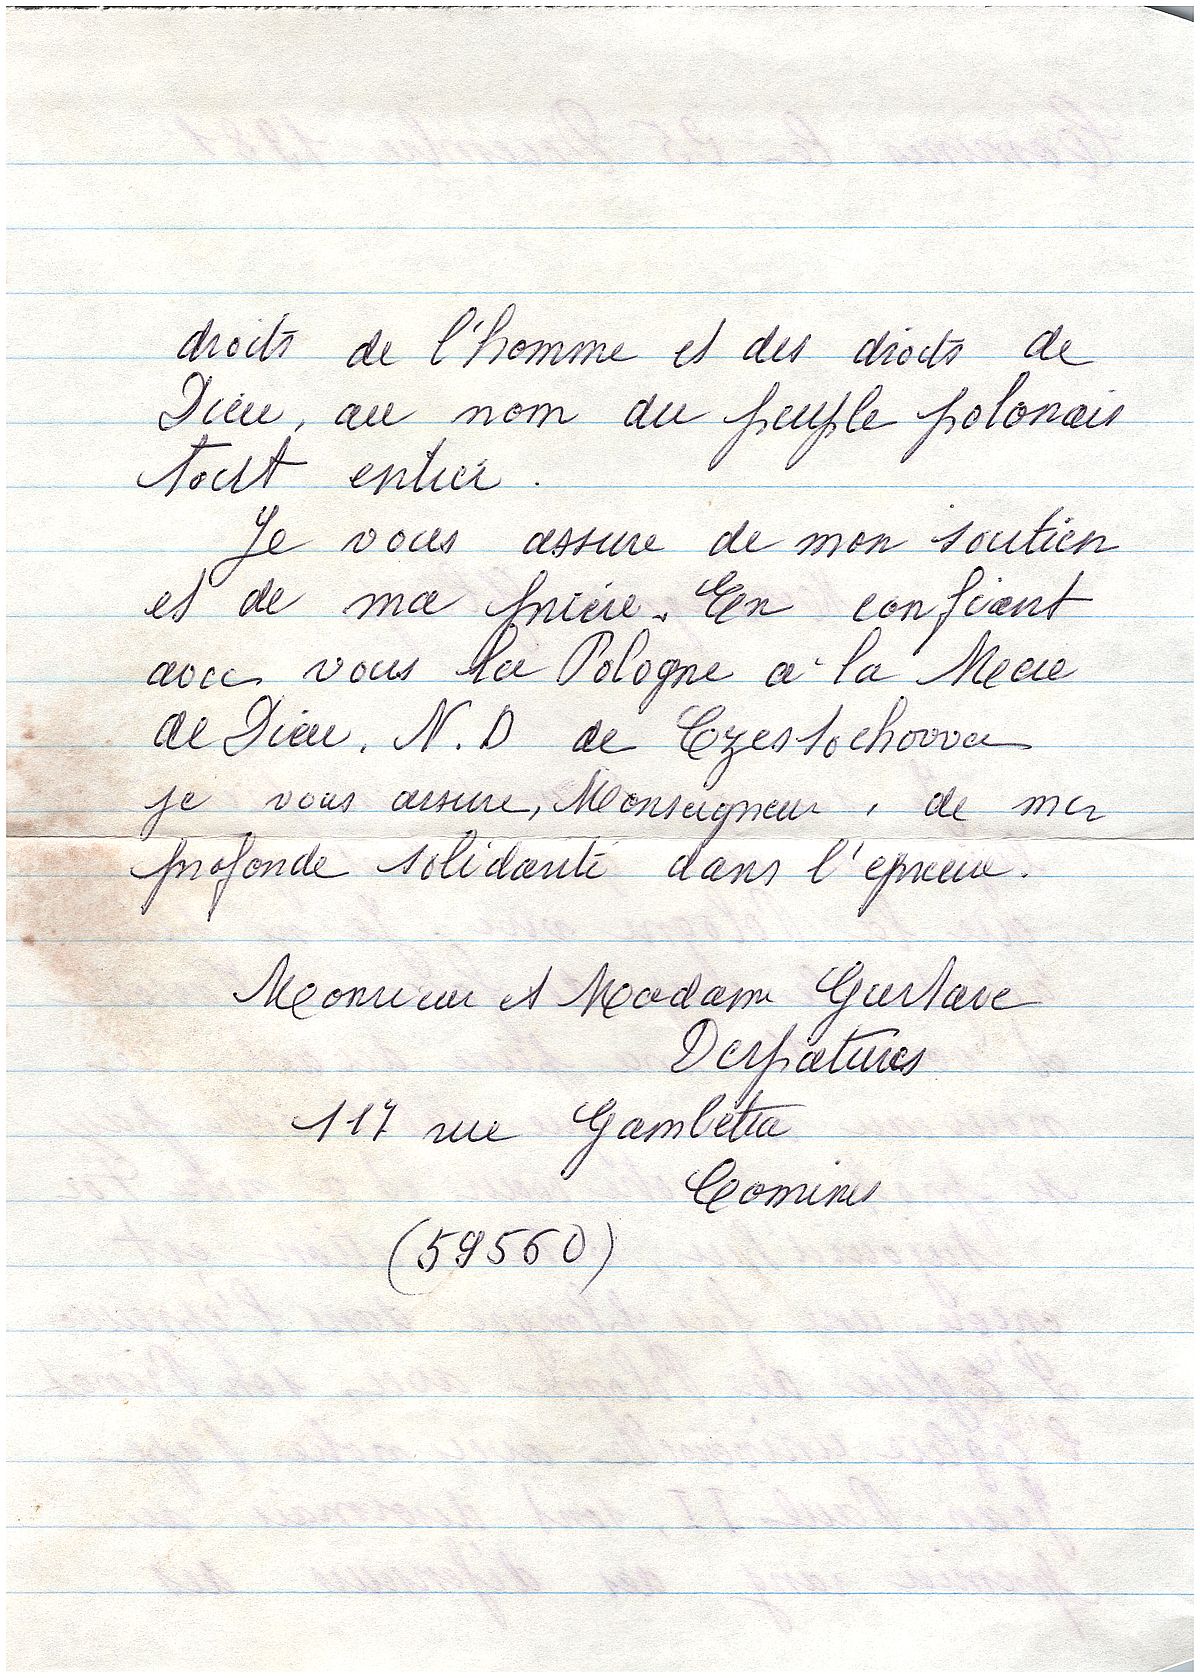 droits de l'homme et des droits de
Dieu, au nom du peuple polonais
tout entier.
Je vous assure de mon soutien
et de ma prière. En confiant
avec vous la Pologne à la Mère
de Dieu, N.D de Czestochowa
je vous assure, Monseigneur, de ma
profonde solidarité dans l'épreuve.
Monsieur et Madame Gustave
Despatures
117 rue Gambetta
Comines
(59560)